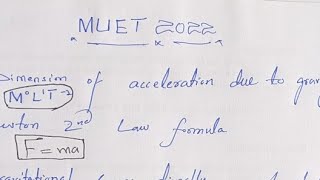 MUET 2022
Dimension of acceleration due to grav
M°L'T⁻²
ewton 2nd Law formula
F = ma